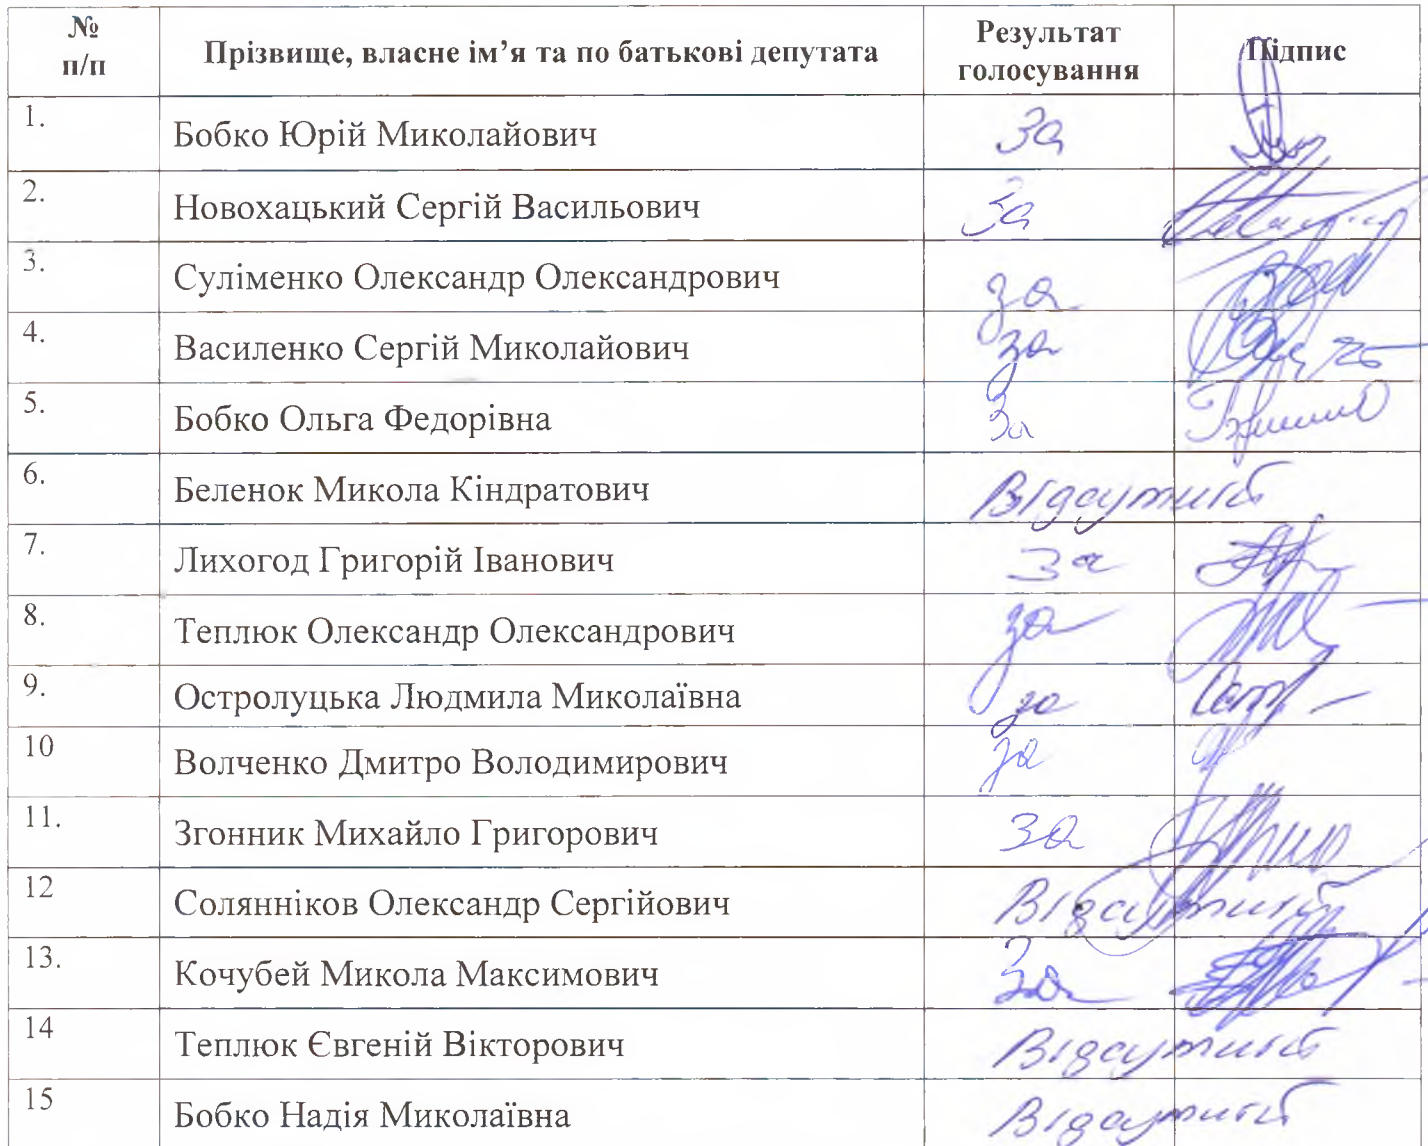 № п/п Прізвище, власне ім’я та по батькові депутата Результат голосування Підпис
1. Бобко Юрій Миколайович За
2. Новохацький Сергій Васильович За
3. Суліменко Олександр Олександрович за
4. Василенко Сергій Миколайович за
5. Бобко Ольга Федорівна За
6. Беленок Микола Кіндратович Відсутній
7. Лихогод Григорій Іванович За
8. Теплюк Олександр Олександрович за
9. Остролуцька Людмила Миколаївна за
10 Волченко Дмитро Володимирович за
11. Згонник Михайло Григорович за
12 Солянніков Олександр Сергійович Відсутній
13. Кочубей Микола Максимович За
14 Теплюк Євгеній Вікторович Відсутній
15 Бобко Надія Миколаївна Відсутній